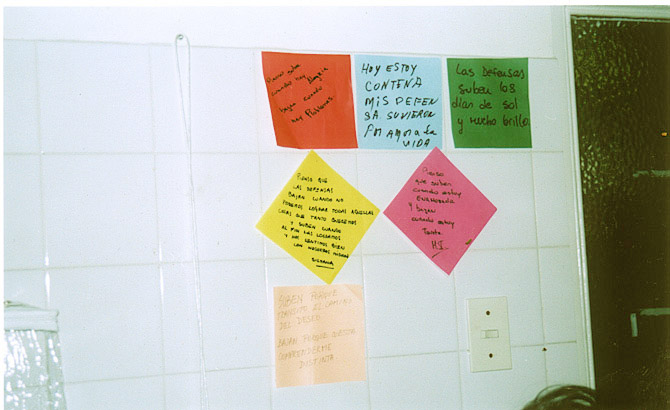 Pienso suben
cuando hay Alegria
bajan cuando
hay Problemas.
HOY ESTOY
CONTENA
MIS DEFEN
SA SUVIERON
POR AMOR A LA
VIDA
Las Defensas
suben los
días de sol
y mucho brillo
PIENSO QUE
LAS DEFENSAS
BAJAN CUANDO NO
PODEMOS LOGRAR TODAS AQUELLAS
COSAS QUE TANTO QUEREMOS
Y SUBEN CUANDO
AL FIN LAS LOGRAMOS
Y NOS SENTIMOS BIEN
CON NOSOTROS MISMOS
SILVANA
Pienso
que suben
cuando estoy
enamorada
y bajan
cuando estoy
triste
SUBEN PORQUE
TRANSITO EL CAMINO
DEL DESEO
BAJAN PORQUE CUESTA
COMPRENDERME
DISTINTA